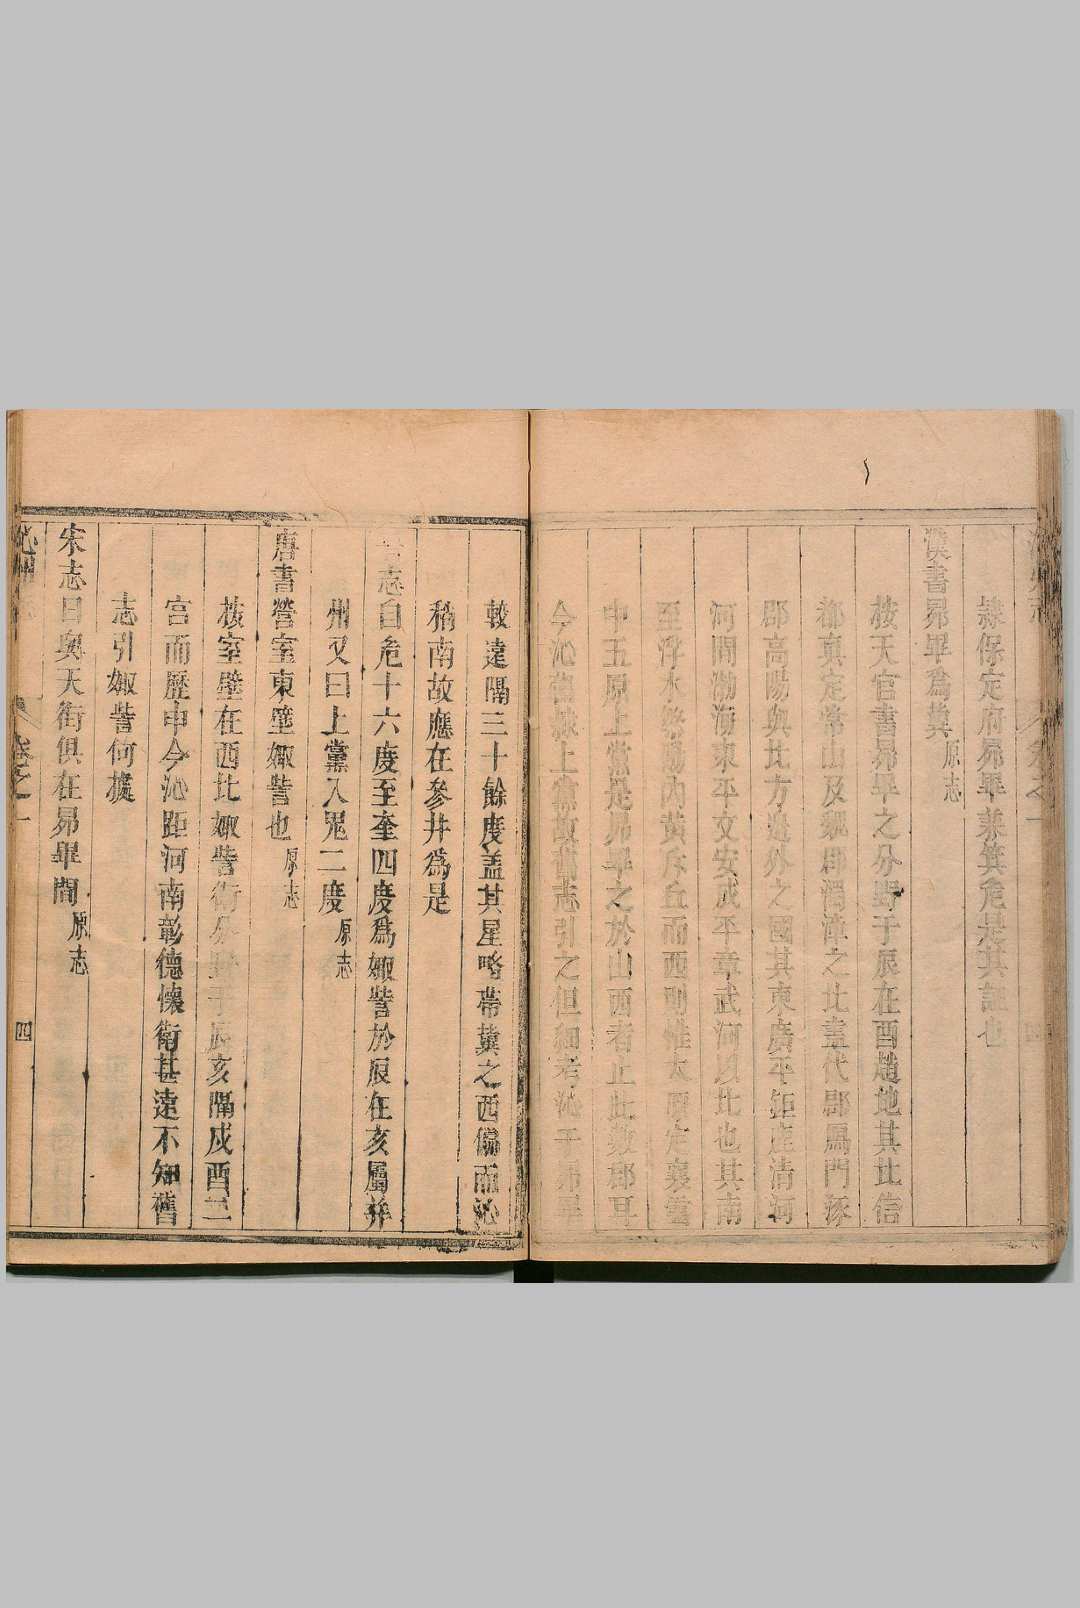 沁州志 卷之一
隸保定府昴畢兼箕危是其証也
漢書昴畢爲冀原志
按天官書昴畢之分野于辰在酉趙地其北信
都真定常山及魏郡濁漳之北盡代郡鴈門涿
郡高陽與北方邊外之國其東廣平鉅鹿清河
河間渤海東平文安成平章武河以北也其南
至浮水繁陽内黄斥丘而西則惟太原定襄雲
中五原上黨是昴畢之於山西者止此數郡耳
今沁舊隸上黨故舊志引之但細考沁于昴畢
較遠隔三十餘度盖其星略帯冀之西偏而沁
稍南故應在參井爲是
晉志自危十六度至奎四度爲娵訾於辰在亥屬并
州又曰上黨入鬼二度原志
唐書營室東壁娵訾也原志
按室壁在西北娵訾衛分野于辰亥隔戍酉二
宫而歷申今沁距河南彰德懷衛甚遠不知舊
志引娵訾何據
宋志曰輿天街俱在昴畢間原志
沁州志 卷之一 四